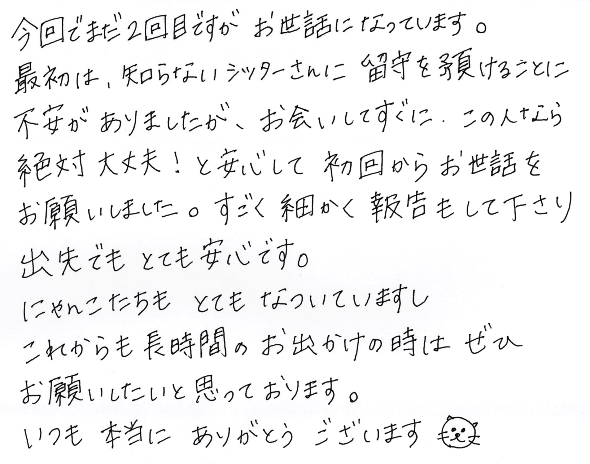 今回でまだ2回目ですが お世話になっています。
最初は、知らないシッターさんに 留守を預けることに
不安が ありましたが、お会いしてすぐに、この人なら
絶対 大丈夫！と安心して 初回からお世話を
お願いしました。すごく 細かく 報告もして下さり
出先でも とても安心です。
にゃんこたちも とても なついていますし
これからも 長時間の お出かけの時は ぜひ
お願いしたいと思っております。
いつも 本当に ありがとう ございます